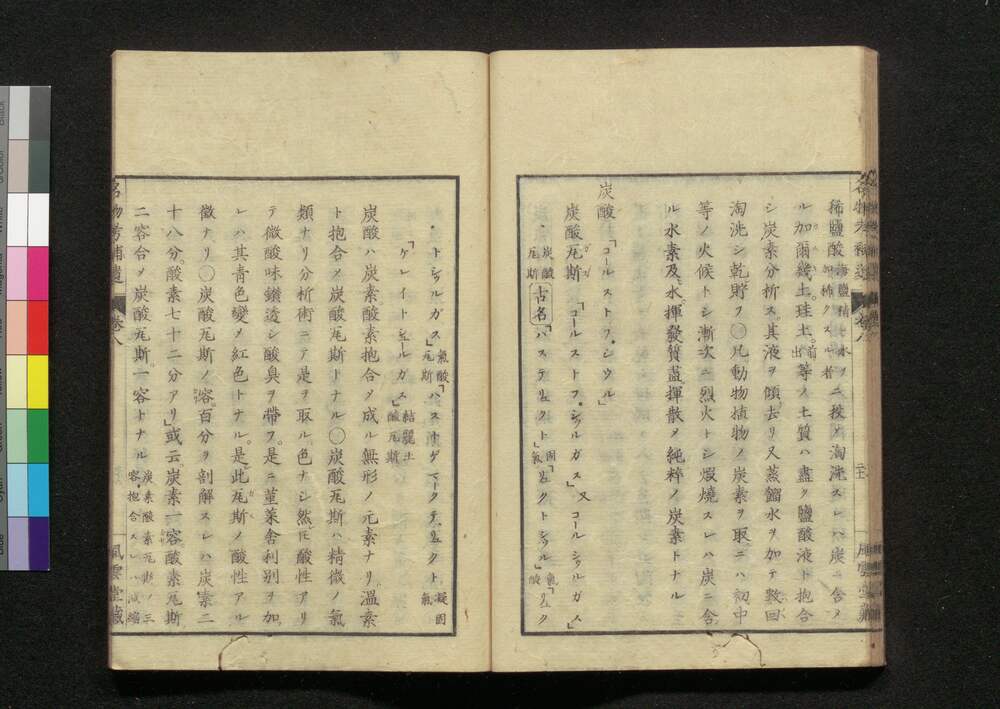 稀鹽酸 海鹽精ヲ水ニテ如稀クスル者 ヲ二投メ淘洗スレハ炭ニ含メ
ル加爾幾土。珪土。等ノ土質ハ盡ク鹽酸液ト抱合
シ炭素分析ス其液ヲ傾去リ又蒸餾水ヲ加テ數回
淘洗シ乾貯フ〇凡動物植物ノ炭素ヲ取ニハ初中
等ノ火候トシ漸次ニ烈火トシ煅燒スレハ炭ニ含
ル水素及水揮發質盡揮散メ純粹ノ炭素トナル
炭酸「コールストフ、シウル」
炭酸瓦斯「コールストフ、シウルガス」又「コールシウルガス」
炭酸瓦斯 古名「ハステリュクト 固氣」「リュクトシウル 氣酸」「リュク
トシウルガス 氣酸瓦斯」「ハスト
「ケレイトシュールガス 粘麗土酸瓦斯」
炭酸ハ炭素。酸素抱合メ成ル無形ノ元素ナリ。溫素
ト抱合メ炭酸瓦斯トナル〇炭酸瓦斯ハ精微ノ氣
類ナリ分析術ニテ是ヲ取ル。色ナシ然𪜈酸性アリ
テ微酸味鑽透シ酸臭ヲ帶フ。是ニ菫菜舍利別ヲ加
レハ其靑色變メ紅色トナル。是此瓦斯ノ酸性アル
徴ナリ〇炭酸瓦斯ノ溶百分ヲ剖解スレハ炭素二
十八分。酸素七十二分アリ」或云炭素一容酸素瓦斯
二容合メ炭酸瓦斯一容トナル 炭素酸素瓦斯ノ三容抱合スレハ減縮
名物考補遺 卷八
風雲堂藏